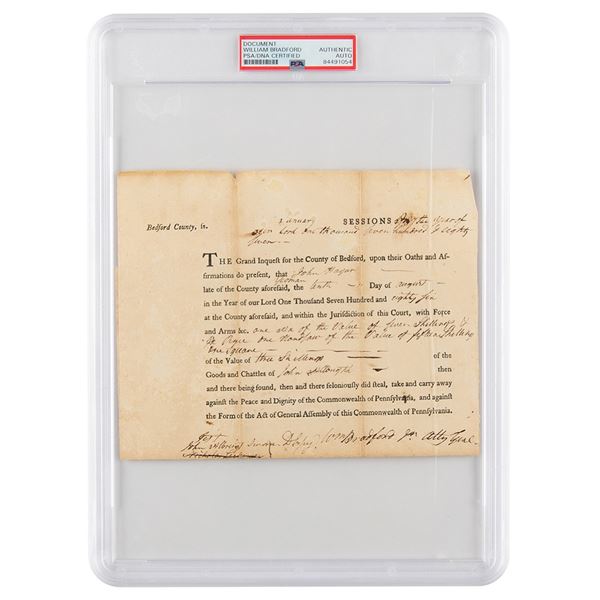 DOCUMENT
WILLIAM BRADFORD
PSA/DNA CERTIFIED
AUTHENTIC
AUTO
84491054
PSA
January SESSIONS In the year of
Bedford County, ss.
our Lord one thousand seven hundred & eighty
seven
THE Grand Inquest for the County of Bedford, upon their Oaths and Af-
firmations do present, that John Hagar
late of the County aforesaid, yeoman the tenth Day of august
in the Year of our Lord One Thousand Seven Hundred and eighty six
at the County aforesaid, and within the Jurisdiction of this Court, with Force
and Arms &c. one of the Value of seven Shillings
one Handsaw of the Value of fifteen Shillings
one Square
of the Value of three Shillings of the
Goods and Chattles of John then
and there being found, then and there feloniously did steal, take and carry away
against the Peace and Dignity of the Commonwealth of Pennsylvania, and against
the Form of the Act of General Assembly of this Commonwealth of Pennsylvania.
John Wm Bradford Jr. Atty Genl